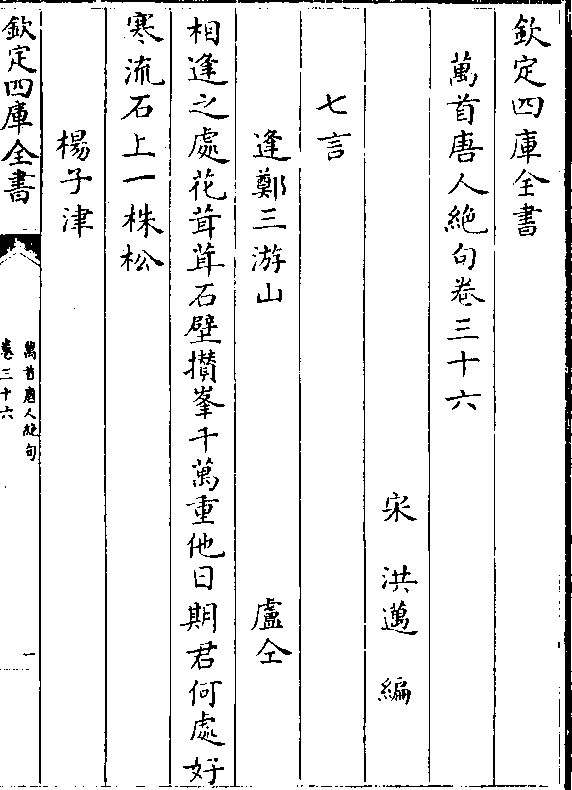 欽定四庫全書
萬首唐人絶句卷三十六
宋 洪邁 編
七言
逢鄭三游山 盧仝
相逢之處花茸茸石壁攢峯千萬重他日期君何處好
寒流石上一株松
楊子津
欽定四庫全書
萬首唐人絶句
卷三十六
一